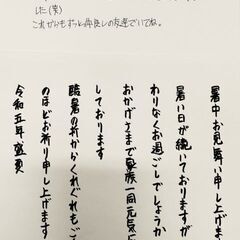 した(笑)
これからもずっと仲良しの友達でいてね。
暑中お見舞い申し上げま
暑い日が続いておりますが
わりなくお過ごしでしょうか
おかげさまで家族一同元気に
しております
酷暑の折からくれぐれもご
のほどお祈り申し上げます
令和五年盛夏